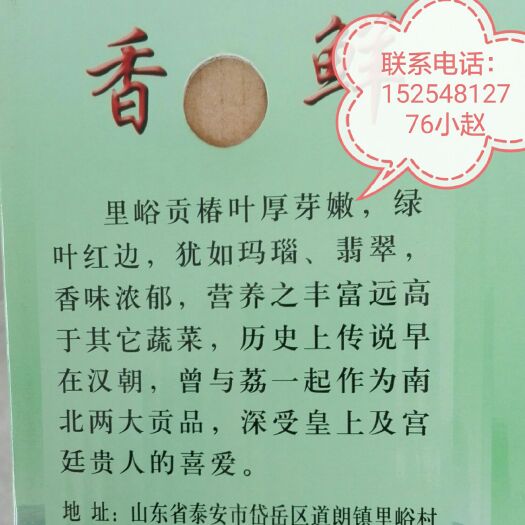 香 鲜
联系电话：
152548127
76小赵
里峪贡椿叶厚芽嫩，绿
叶红边，犹如玛瑙、翡翠，
香味浓郁，营养之丰富远高
于其它蔬菜，历史上传说早
在汉朝，曾与荔一起作为南
北两大贡品，深受皇上及宫
廷贵人的喜爱。
地 址：山东省泰安市岱岳区道朗镇里峪村